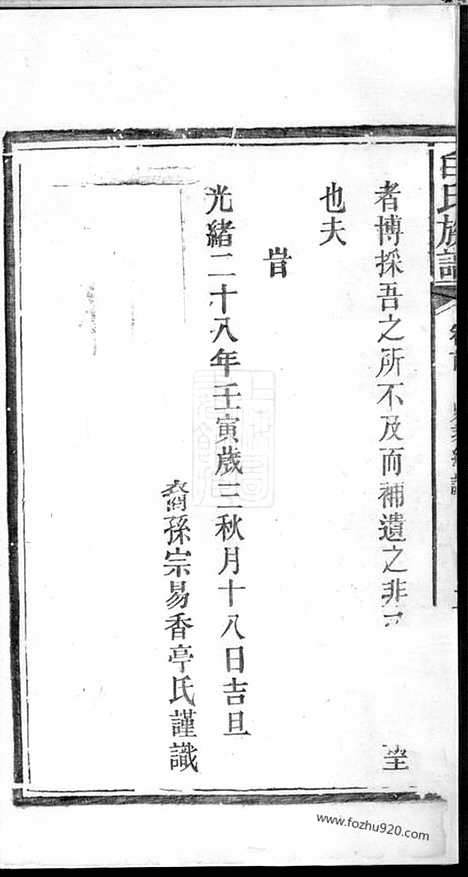 白氏族譜
者博採吾之所不及而補遺之非
也夫
旹
光緒二十八年壬寅歲三秋月十八日吉旦
裔孫宗易香亭氏謹識
www.fozhu920.com